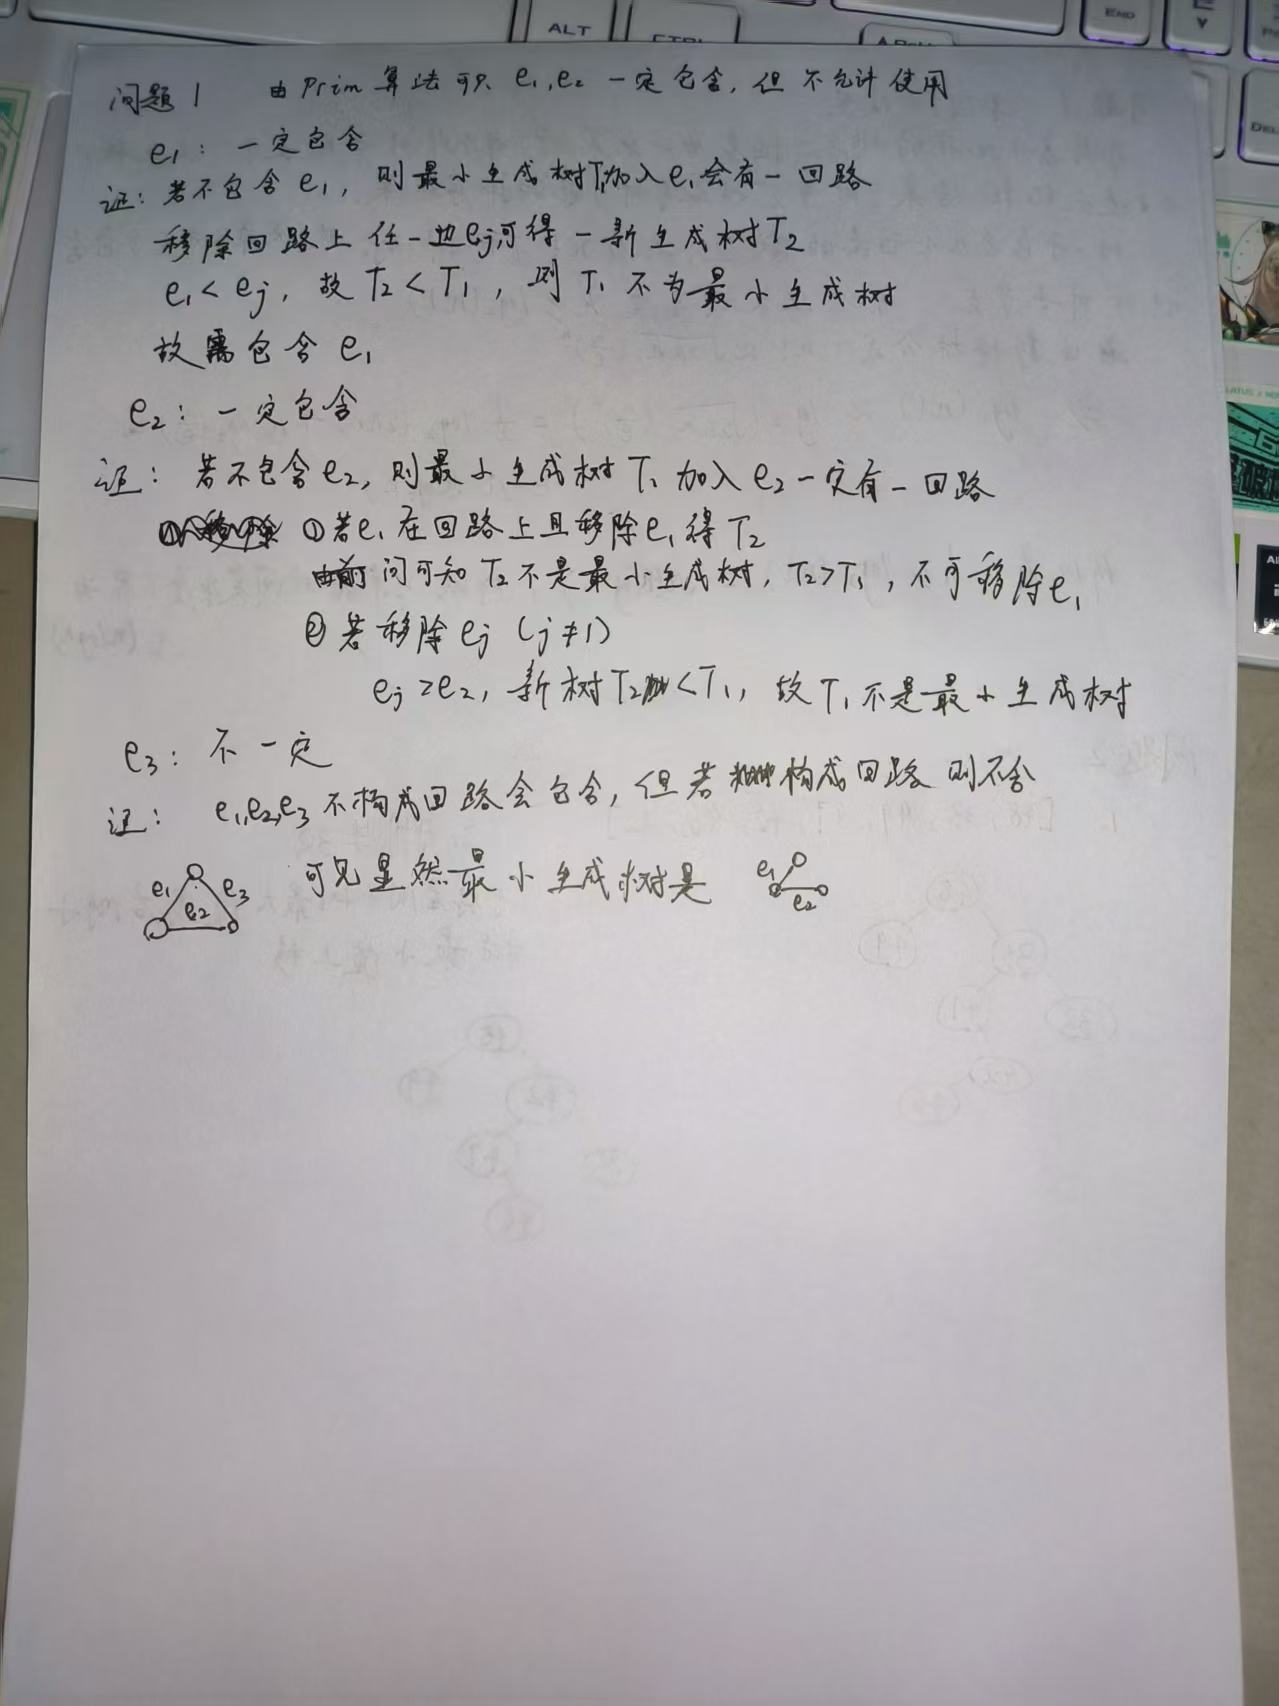 ALT
CTRL
END
DEL
问题1 由Prim算法可知 e₁,e₂ 一定包含,但不允许使用
e₁: 一定包含
证: 若不包含e₁, 则最小生成树T₁加入e₁会有一回路
移除回路上任一边eⱼ,可得一新生成树T₂
e₁<eⱼ, 故T₂<T₁, 则T₁不为最小生成树
故需包含e₁
e₂: 一定包含
证: 若不包含e₂, 则最小生成树T₁加入e₂一定有一回路
①若e₁在回路上且移除e₁得T₂
由前问可知T₂不是最小生成树, T₂>T₁, 不可移除e₁
②若移除eⱼ (j≠1)
eⱼ>e₂, 新树T₂<T₁, 故T₁不是最小生成树
e₃: 不一定
证: e₁,e₂,e₃不构成回路会包含, 但若构成回路则不含
e₁ e₂ e₃ 可见显然最小生成树是 e₁ e₂